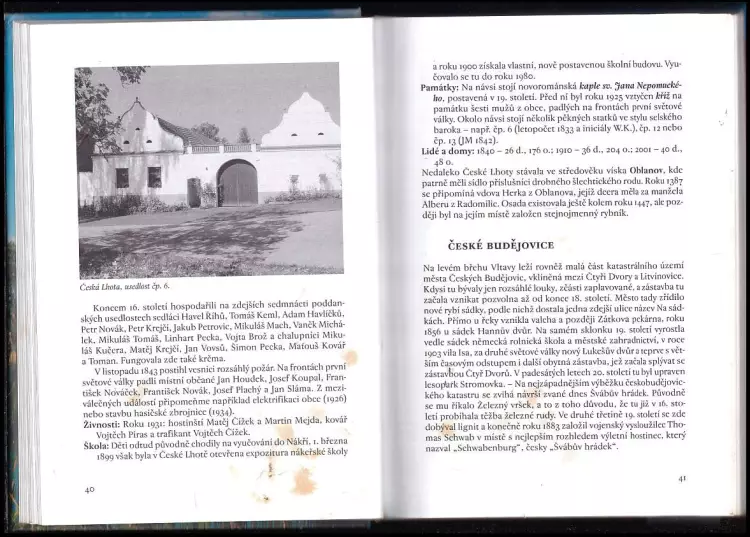 Česká Lhota, usedlost čp. 6.
Koncem 16. století hospodařili na zdejších sedmnácti poddan-
ských usedlostech sedláci Havel Říhů, Tomáš Keml, Adam Havlíčků,
Petr Novák, Petr Krejčí, Jakub Petrovic, Mikuláš Mach, Vaněk Michá-
lek, Mikuláš Tomáš, Linhart Pecka, Vojta Brož a chalupníci Miku-
láš Kučera, Matěj Krejčí, Jan Vovsů, Šimon Pecka, Matouš Kovář
a Toman. Fungovala zde také krčma.
V listopadu 1843 postihl vesnici rozsáhlý požár. Na frontách první
světové války padli místní občané Jan Houdek, Josef Koupal, Fran-
tišek Nováček, František Novák, Josef Plachý a Jan Sláma. Z mezi-
válečných událostí připomeňme například elektrifikaci obce (1926)
nebo stavbu hasičské zbrojnice (1934).
Živnosti: Roku 1931: hostinští Matěj Čížek a Martin Mejda, kovář
Vojtěch Píras a trafikant Vojtěch Čížek.
Škola: Děti odtud původně chodily na vyučování do Nákří. 1. března
1899 však byla v České Lhotě otevřena expozitura nákeřské školy
40
a roku 1900 získala vlastní, nově postavenou školní budovu. Vyu-
čovalo se tu do roku 1980.
Památky: Na návsi stojí novorománská kaple sv. Jana Nepomucké-
ho, postavená v 19. století. Před ní byl roku 1925 vztyčen kříž na
památku šesti mužů z obce, padlých na frontách první světové
války. Okolo návsi stojí několik pěkných statků ve stylu selského
baroka – např. čp. 6 (letopočet 1833 a iniciály W.K.), čp. 12 nebo
čp. 13 (JM 1842).
Lidé a domy: 1840 – 26 d., 176 o.; 1910 – 36 d., 204 o.; 2001 – 40 d.,
48 o.
Nedaleko České Lhoty stávala ve středověku víska Oblanov, kde
patrně měli sídlo příslušníci drobného šlechtického rodu. Roku 1387
se připomíná vdova Herka z Oblanova, jejíž dcera měla za manžela
Alberu z Radomilic. Osada existovala ještě kolem roku 1447, ale poz-
ději byl na jejím místě založen stejnojmenný rybník.
ČESKÉ BUDĚJOVICE
Na levém břehu Vltavy leží rovněž malá část katastrálního území
města Českých Budějovic, vklíněná mezi Čtyři Dvory a Litvínovice.
Kdysi tu bývaly jen rozsáhlé louky, zčásti zaplavované, a zástavba tu
začala vznikat pozvolna až od konce 18. století. Město tady zřídilo
nové rybí sádky, podle nichž dostala jedna zdejší ulice název Na sád-
kách. Přímo u řeky vznikla valcha a později Zátkova pekárna, roku
1856 u sádek Hannův dvůr. Na samém sklonku 19. století vyrostla
vedle sádek německá rolnická škola a městské zahradnictví, v roce
1903 vila Isa, za druhé světové války nový Lukešův dvůr a teprve s vět-
ším časovým odstupem i další obytná zástavba, jež začala splývat se
zástavbou Čtyř Dvorů. V padesátých letech 20. století tu byl upraven
lesopark Stromovka. – Na nejzápadnějším výběžku českobudějovic-
kého katastru se zvíhá návrší zvané dnes Švábův hrádek. Původně
se mu říkalo Železný vršek, a to z toho důvodu, že tu již v 16. sto-
letí probíhala těžba železné rudy. Ve druhé třetině 19. století se zde
dobýval lignit a konečně roku 1883 založil vojenský vysloužilec Tho-
mas Schwab v místě s nejlepším rozhledem výletní hostinec, který
nazval „Schwabenburg“, česky „Švábův hrádek“.
41